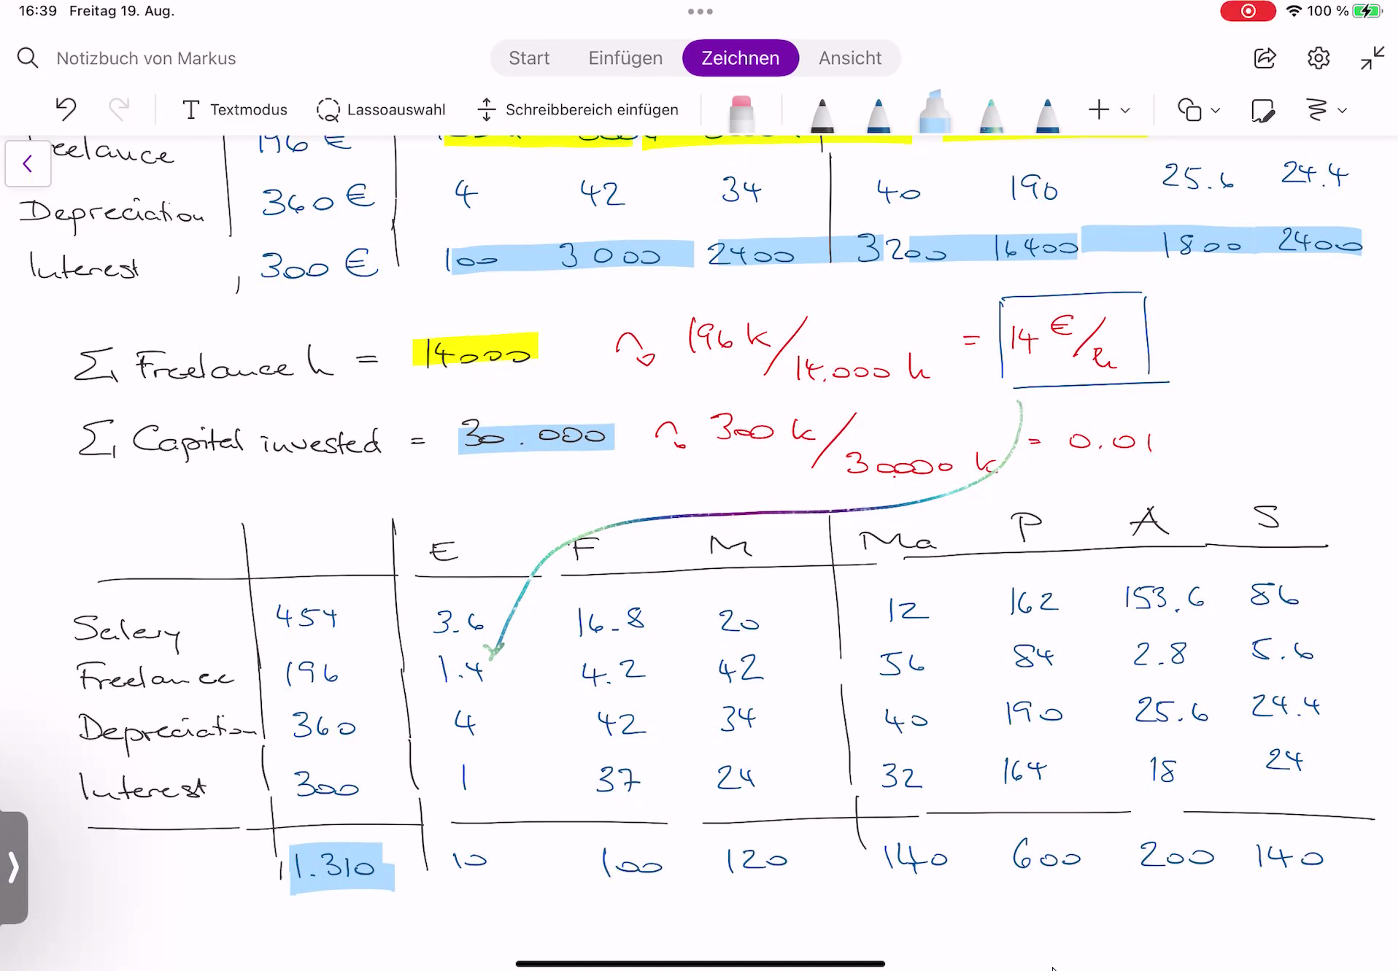 16:39 Freitag 19. Aug. 100 %
Notizbuch von Markus Start Einfügen Zeichnen Ansicht
T Textmodus Lassoauswahl Schreibbereich einfügen
reelance 196 €
Depreciation 360 € 4 42 34 40 190 25.6 24.4
Interest 300 € 100 3000 2400 3200 16400 1800 2400
Σ Freelance h = 14000 196 k/14.000 h = 14 €/h
Σ Capital invested = 30.000 300 k/30.000 k = 0.01
E F M Ma P A S
Salary 454 3.6 16.8 20 12 162 153.6 86
Freelance 196 1.4 4.2 42 56 84 2.8 5.6
Depreciation 360 4 42 34 40 190 25.6 24.4
Interest 300 1 37 24 32 164 18 24
1.310 10 100 120 140 600 200 140